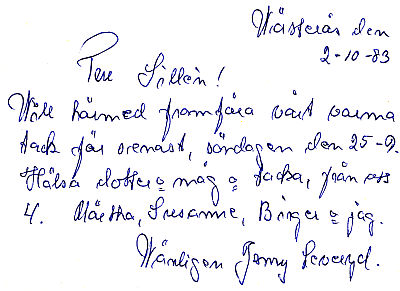 Västerås den
2-10-83
Per Sillén!
Vill härmed framföra vårt varma
tack för senast, söndagen den 25-9.
Hälsa dotter o måg o tacka, från oss
4. Märtha, Susanne, Birger o jag.
Vänligen Jenny